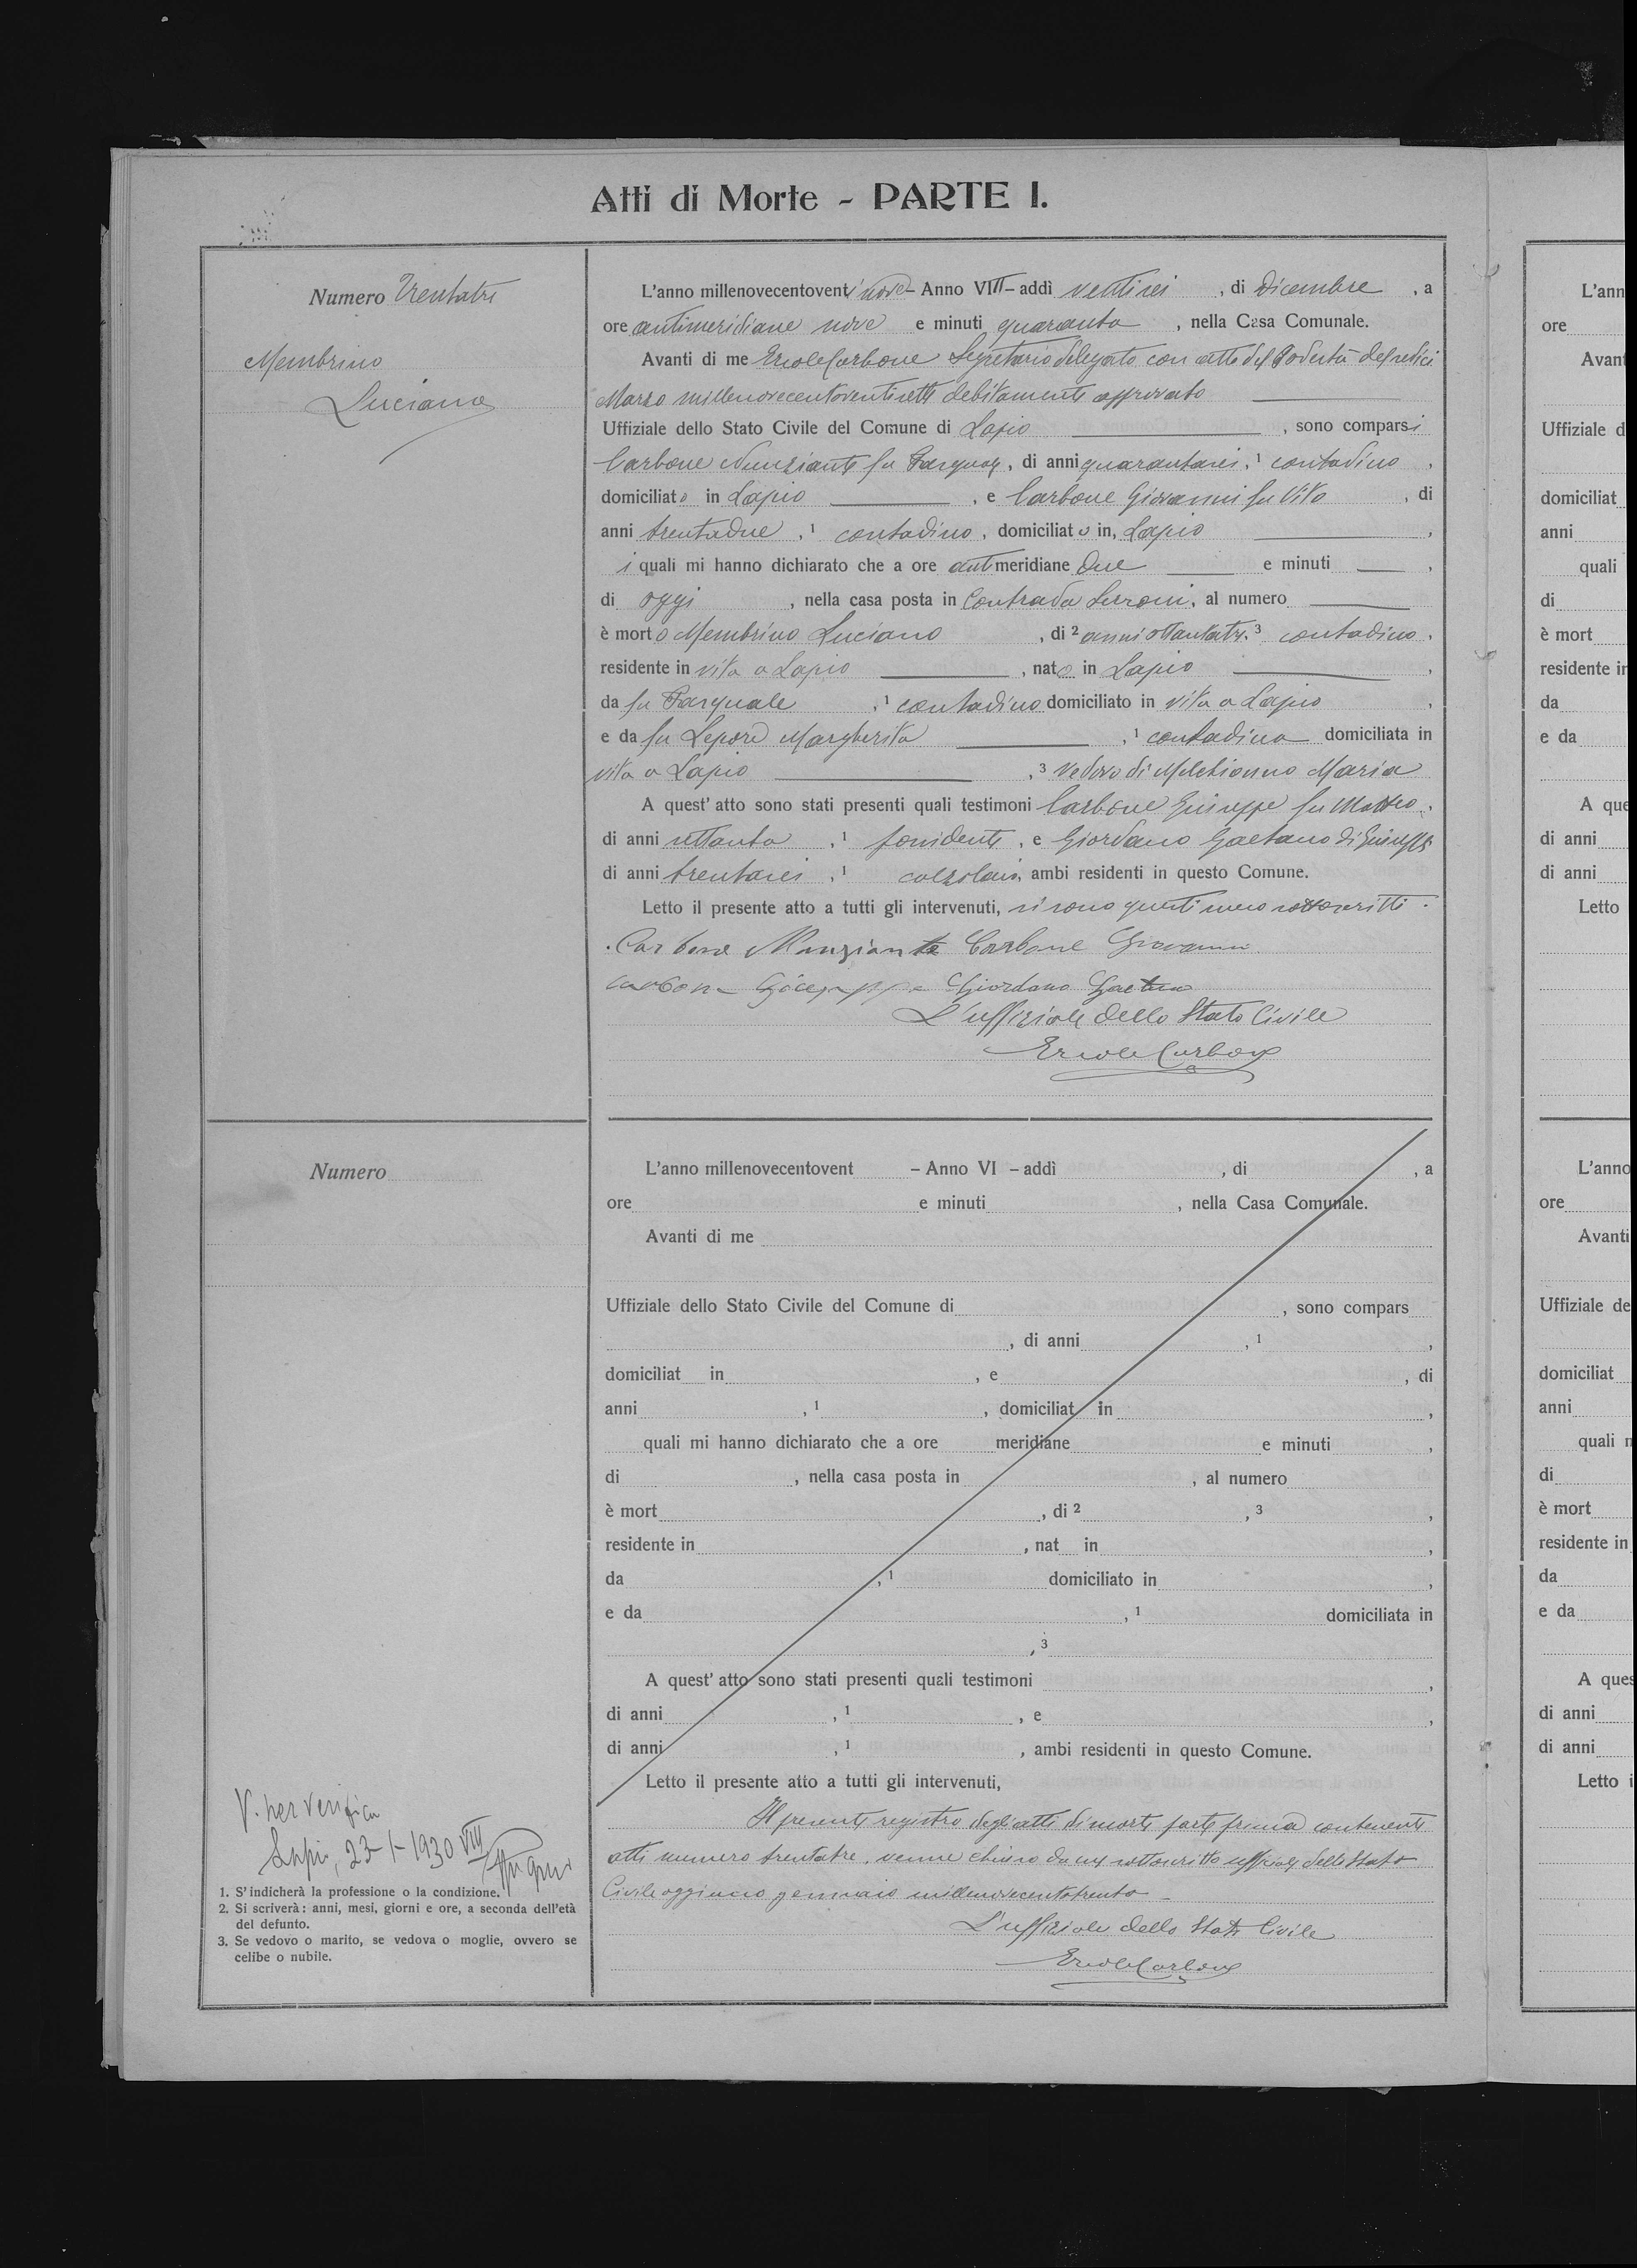 Atti di Morte - PARTE I.
Numero Trentatre
Membrino
Luciano
L'anno millenovecentoventinove - Anno VIII - addì ventisei, di Dicembre, a
ore antimeridiane nove e minuti quaranta, nella Casa Comunale.
Avanti di me Ercole Carbone Segretario delegato con atto del Podestà del sedici
Marzo millenovecentoventisette debitamente approvato
Uffiziale dello Stato Civile del Comune di Lapio, sono comparsi
Carbone Nunziante fu Pasquale, di anni quarantasei, 1 contadino,
domiciliato in Lapio, e Carbone Giovanni fu Vito, di
anni trentadue, 1 contadino, domiciliato in, Lapio,
i quali mi hanno dichiarato che a ore antimeridiane due e minuti,
di oggi, nella casa posta in Contrada Serroni, al numero
è morto Membrino Luciano, di 2 anni ottantatre, 3 contadino,
residente in vita a Lapio, nato in Lapio,
da fu Pasquale, 1 contadino domiciliato in vita a Lapio,
e da fu Lepore Margherita, 1 contadina domiciliata in
vita a Lapio, 3 vedovo di Melchionno Maria
A quest' atto sono stati presenti quali testimoni Carbone Giuseppe fu Matteo,
di anni ottanta, 1 possidente, e Giordano Gaetano di Giuseppe
di anni trentasei, 1 calzolaio, ambi residenti in questo Comune.
Letto il presente atto a tutti gli intervenuti, si sono questi meco sottoscritti.
Carbone Nunziante Carbone Giovanni
Carbone Giuseppe Giordano Gaetano
L'uffiziale dello Stato Civile
Ercole Carbone
Numero
L'anno millenovecentovent - Anno VI - addì, di, a
ore e minuti, nella Casa Comunale.
Avanti di me
Uffiziale dello Stato Civile del Comune di, sono compars
, di anni, 1,
domiciliat in, e, di
anni, 1, domiciliat in,
quali mi hanno dichiarato che a ore meridiane e minuti,
di, nella casa posta in, al numero
è mort, di 2, 3,
residente in, nat in,
da, 1 domiciliato in,
e da, 1 domiciliata in
, 3
A quest' atto sono stati presenti quali testimoni,
di anni, 1, e,
di anni, 1, ambi residenti in questo Comune.
Letto il presente atto a tutti gli intervenuti,
Il presente registro degli atti di morte parte prima contenente
atti numero trentatre, venne chiuso da me sottoscritto uffiziale dello Stato
Civile oggi uno gennaio millenovecentotrenta
L'uffiziale dello Stato Civile
Ercole Carbone
V. per verifica
Lapio, 23-1-1930 VIII
1. S'indicherà la professione o la condizione.
2. Si scriverà: anni, mesi, giorni e ore, a seconda dell'età
del defunto.
3. Se vedovo o marito, se vedova o moglie, ovvero se
celibe o nubile.
L'ann
ore
Avant
Uffiziale d
domiciliat
anni
quali
di
è mort
residente in
da
e da
A que
di anni
di anni
Letto
L'anno
ore
Avanti
Uffiziale de
domiciliat
anni
quali n
di
è mort
residente in
da
e da
A ques
di anni
di anni
Letto i